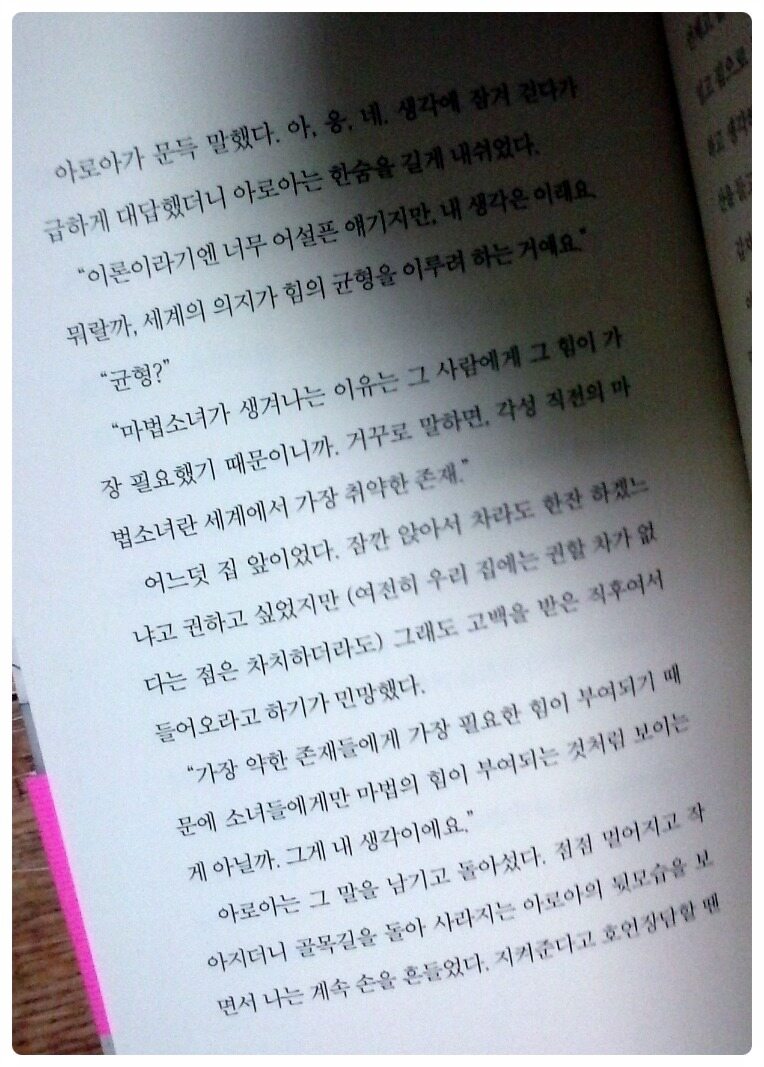 아로아가 문득 말했다. 아, 응, 네. 생각에 잠겨 걷다가
급하게 대답했더니 아로아는 한숨을 길게 내쉬었다.
“이론이라기엔 너무 어설픈 얘기지만, 내 생각은 이래요.
뭐랄까, 세계의 의지가 힘의 균형을 이루려 하는 거예요.”
“균형?”
“마법소녀가 생겨나는 이유는 그 사람에게 그 힘이 가
장 필요했기 때문이니까. 거꾸로 말하면, 각성 직전의 마
법소녀란 세계에서 가장 취약한 존재.”
어느덧 집 앞이었다. 잠깐 앉아서 차라도 한잔 하겠느
냐고 권하고 싶었지만 (여전히 우리 집에는 권할 차가 없
다는 점은 차치하더라도) 그래도 고백을 받은 직후여서
들어오라고 하기가 민망했다.
“가장 약한 존재들에게 가장 필요한 힘이 부여되기 때
문에 소녀들에게만 마법의 힘이 부여되는 것처럼 보이는
게 아닐까. 그게 내 생각이에요.”
아로아는 그 말을 남기고 돌아섰다. 점점 멀어지고 작
아지더니 골목길을 돌아 사라지는 아로아의 뒷모습을 보
면서 나는 계속 손을 흔들었다. 지켜준다고 호언장담할 땐